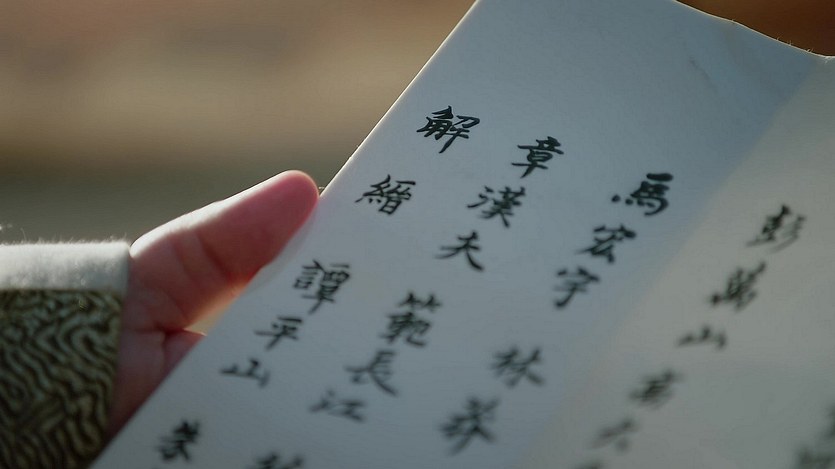 彭萬山
馬宏宇 林
章漢夫 範長江
解縉 譚平山